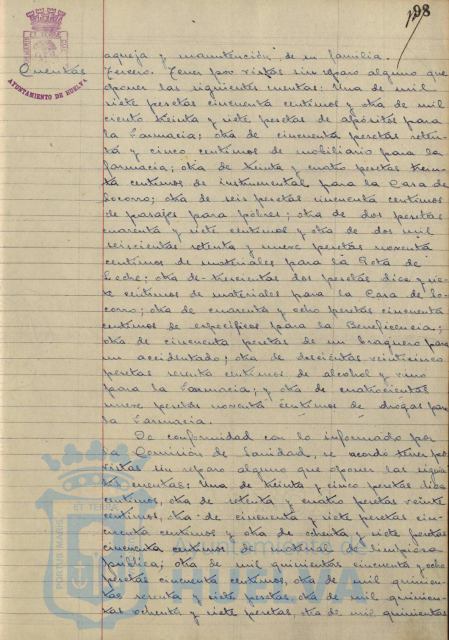 198
Cuentas
AYUNTAMIENTO DE HUELVA
aqueja y manutención de su familia.
Tercero. Tener por vistas sin reparo alguno que
oponer las siguientes cuentas: Una de mil
siete pesetas cincuenta centimos y otra de mil
ciento treinta y siete pesetas de apósitos para
la Farmacia; otra de cincuenta pesetas seten-
ta y cinco centimos de mobiliario para la
farmacia; otra de treinta y cuatro pesetas trein-
ta centimos de instrumental para la Casa de
Socorro; otra de seis pesetas cincuenta centimos
de pasajes para pobres; otra de dos pesetas
cuarenta y siete centimos y otra de dos mil
seiscientas setenta y nueve pesetas noventa
centimos de materiales para la Gota de
Leche; otra de trescientas dos pesetas diez y sie-
te centimos de materiales para la Casa de So-
corro; otra de cuarenta y ocho pesetas cincuenta
centimos de específicos para la Beneficencia;
otra de cincuenta pesetas de un braguero para
un accidentado; otra de doscientas veinticinco
pesetas sesenta centimos de alcohol y vino
para la Farmacia; y otra de cuatrocientas
nueve pesetas noventa centimos de drogas para
la Farmacia.
De conformidad con lo informado por
la Comisión de Sanidad, se acordó tener por
vistas sin reparo alguno que oponer las siguien-
tes cuentas: Una de treinta y cinco pesetas diez
centimos, otra de setenta y cuatro pesetas veinte
centimos, otra de cincuenta y siete pesetas cin-
cuenta centimos y otra de ochenta y siete pesetas
cincuenta centimos de material de limpieza
pública; otra de mil quinientas cincuenta y ocho
pesetas cincuenta centimos, otra de mil quinien-
tas sesenta y siete pesetas, otra de mil quinien-
tas ochenta y siete pesetas, otra de mil quinientas